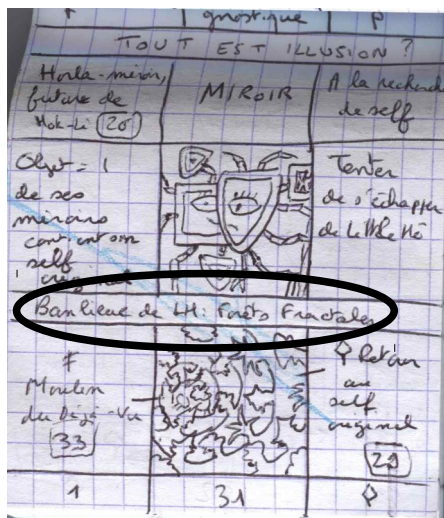 gnostique P
TOUT EST ILLUSION ?
Horla-miroir,
future de
Mok-Li 26
MIROIR
A la recherche
de self
Objet = 1
de ses
miroirs
contient son
self
original
Tenter
de s'échapper
de Little Hô
Banlieue de LH: Forêts Fractales
Moulin
du Déjà-Vu
33
Retour
au
self
original
1 31